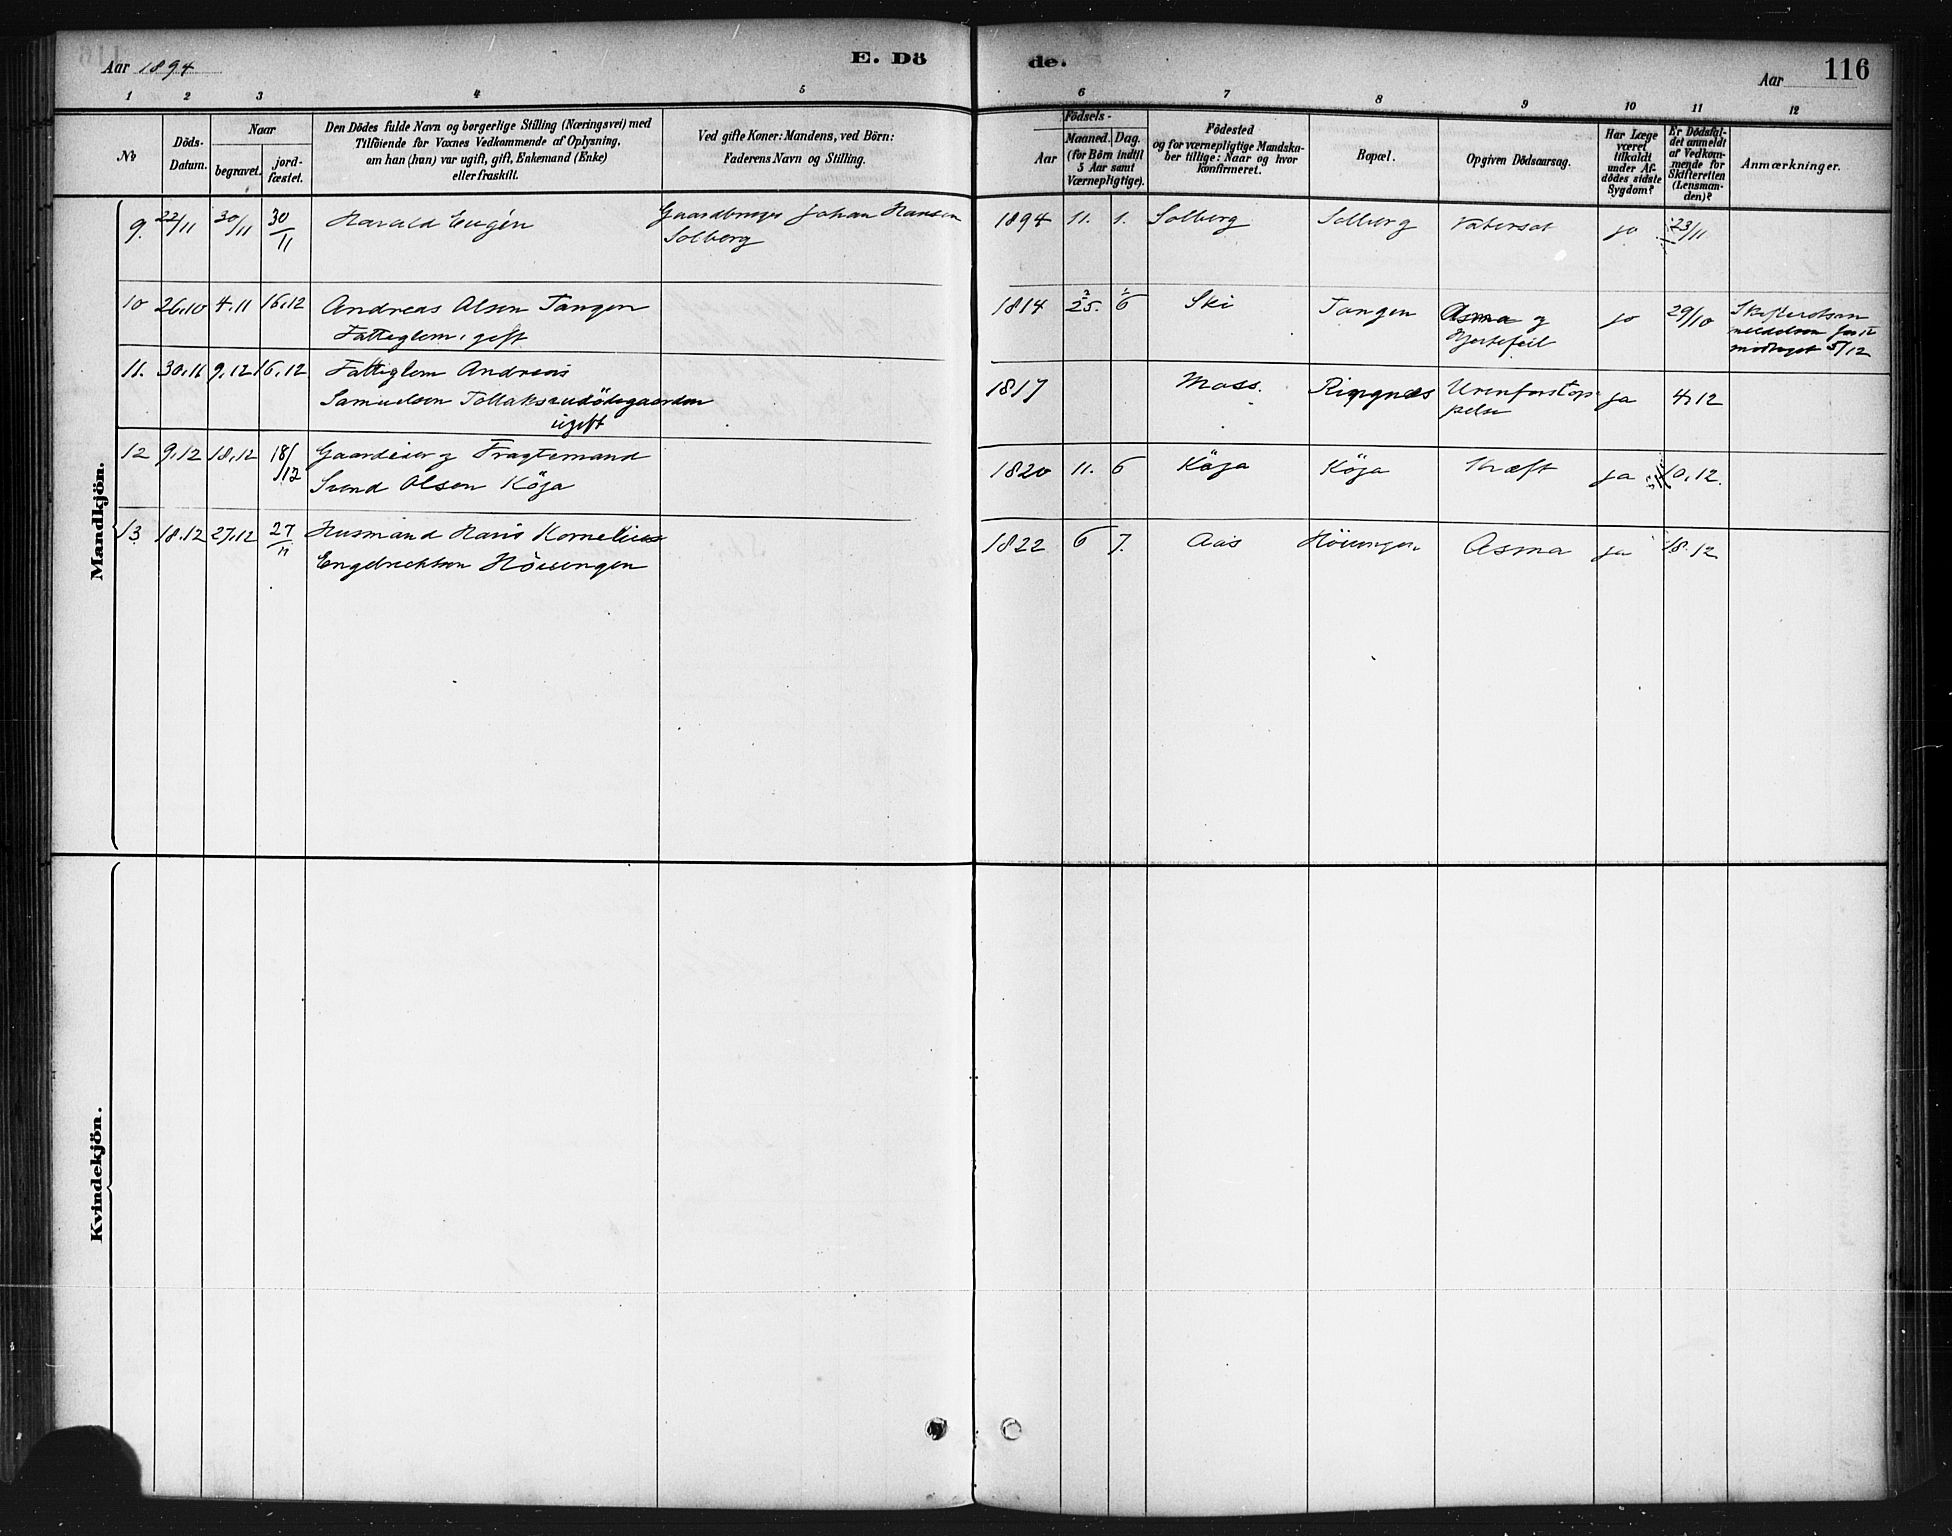 Aar 1894
E. Dö
de.
Aar
116
1 2 3 4 5 6 7 8 9 10 11 12
No
Döds-
Datum.
Naar
begravet.
jord-
fæstet.
Den Dödes fulde Navn og borgerlige Stilling (Næringsvei) med
Tilföiende for Voxnes Vedkommende af Oplysning,
om han (hun) var ugift, gift, Enkemand (Enke)
eller fraskilt.
Ved gifte Koner: Mandens, ved Börn:
Faderens Navn og Stilling.
Födsels-
Aar
Maaned. Dag.
(for Börn indtil
5 Aar samt
Værnepligtige).
Födested
og for værnepligtige Mandska-
ber tillige: Naar og hvor
konfirmeret.
Bopæl.
Opgiven Dödsaarsag.
Har Læge
været
tilkaldt
under Af-
dödes sidste
Sygdom?
Er Dödsfal-
det anmeldt
af Vedkom-
mende for
Skifteretten
(Lensman-
den)?
Anmærkninger.
Mandkjön.
9. 22/11 30/11 30/11 Harald Eugén Gaardbruger Johan Hansen
Solberg
1894 11. 1. Solberg Solberg ja 23/11
10 26.10 4.11 16.12 Andreas Olsen Tangen
Fattiglem, gift
1814 25. 6 Ski Tangen Asma og
Hjertefeil
ja 29/10
5/12
11. 30.11 9.12 16.12 Fattiglem Andreas
Samuelsen Tollaksrudödegaarden
ugift
1817 Moss. Ringnæs
ja 4.12
12 9.12 18.12 18/12 Gaardeier og Fragtemand
Svend Olsen Köja
1820 11. 6 Köja Köja Kræft ja 10.12.
13 18.12 27.12 27/11 Husmand Hans Kornelius
Engebrektsen Höiungen
1822 6 7. Aas Höiungen Asma ja 18.12
Kvindekjön.